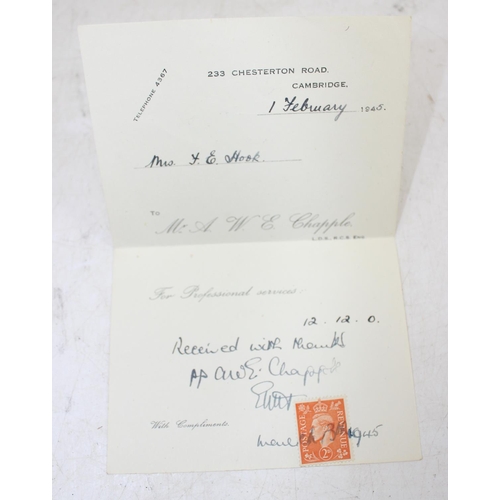 TELEPHONE 4367
233 CHESTERTON ROAD,
CAMBRIDGE,
1 February 1945.
Mrs. F. E. Hook.
To
Mr. A. W. E. Chapple.
L.D.S., R.C.S. Eng.
For Professional services.
12. 12. 0.
Received with thanks
pp AWE. Chapple
With Compliments
POSTAGE REVENUE
2D
1945